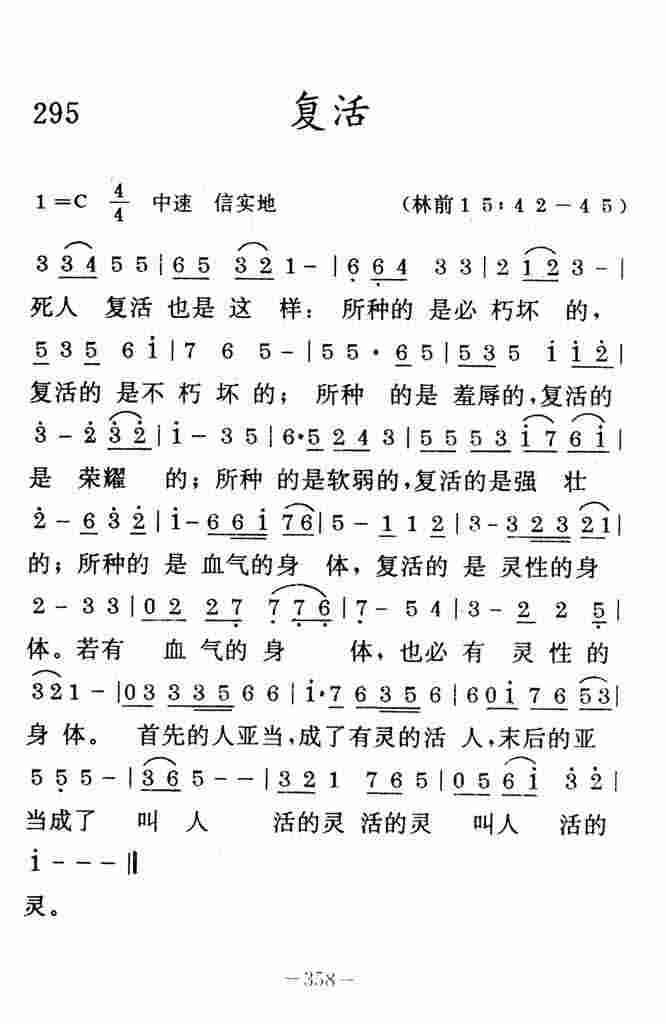 295 复活
1=C 4/4 中速 信实地 (林前15:42-45)
3 3 4 5 5 | 6 5 3 2 1 - | 6 6 4 3 3 | 2 1 2 3 - |
死人 复活 也是 这 样: 所种的 是必 朽坏 的,
5 3 5 6 i | 7 6 5 - | 5 5 · 6 5 | 5 3 5 i i 2 |
复活的 是不 朽 坏 的; 所种 的是 羞辱的,复活的
3 - 2 3 2 | i - 3 5 | 6 · 5 2 4 3 | 5 5 5 3 i 7 6 i |
是 荣耀 的; 所种 的是软弱的,复活的是强 壮
2 - 6 3 2 | i - 6 6 i 7 6 | 5 - 1 1 2 | 3 - 3 2 3 2 1 |
的; 所种的 是 血气的身 体, 复活的 是 灵性的身
2 - 3 3 | 0 2 2 7 7 7 6 | 7 - 5 4 | 3 - 2 2 5 |
体。若有 血 气的 身 体,也必 有 灵 性 的
3 2 1 1 - | 0 3 3 3 3 5 6 6 | i · 7 6 3 5 6 | 6 0 i 7 6 5 3 |
身 体。 首先的人亚当,成了有灵的活 人,末后的亚
5 5 5 - | 3 6 5 - - | 3 2 1 7 6 5 | 0 5 6 i 3 2 |
当成了 叫 人 活的灵 活的灵 叫人 活的
i - - - ||
灵。
-358-